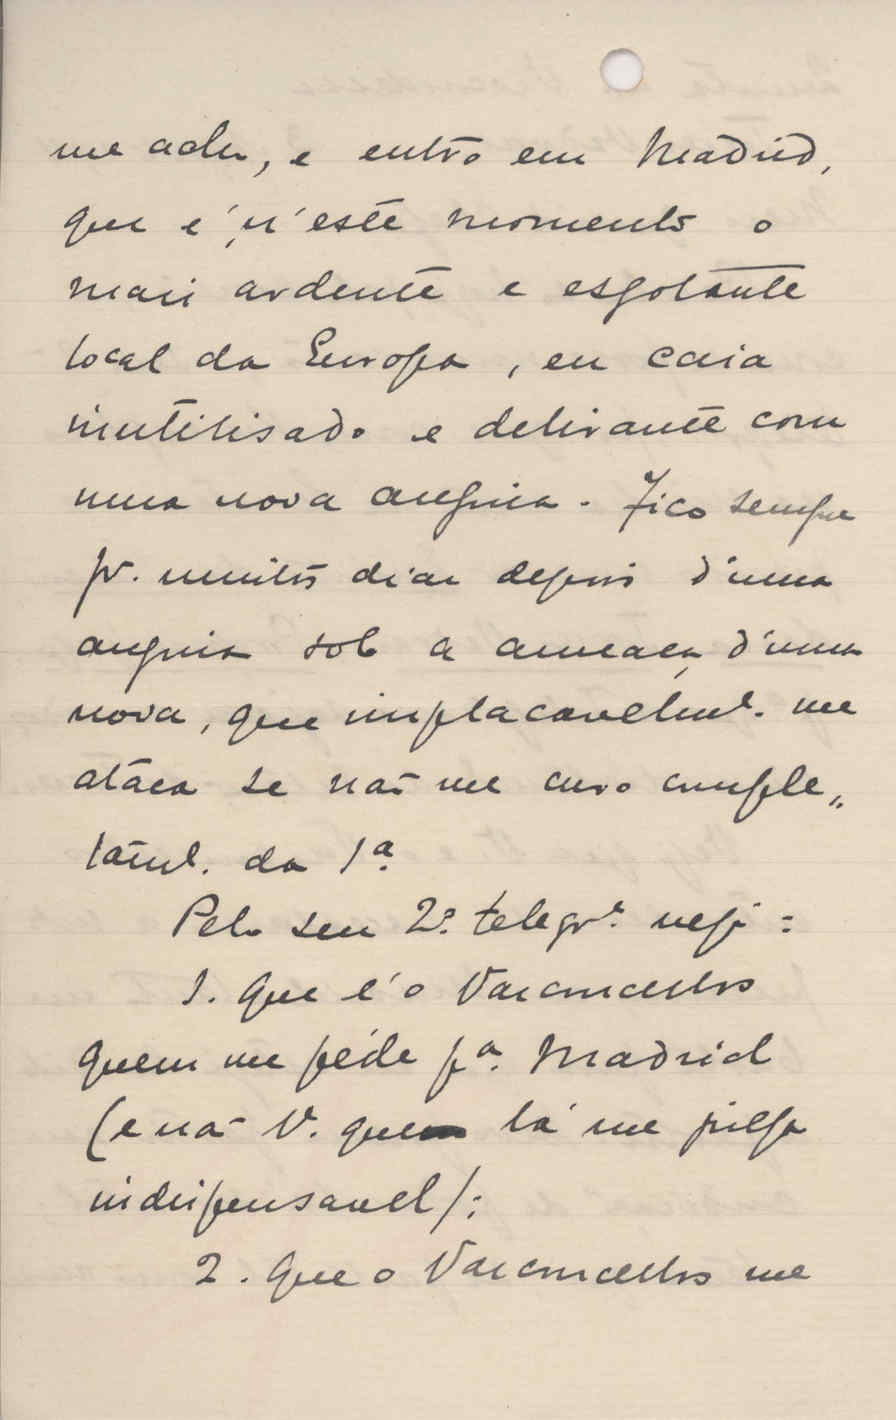 me acho, e então em Madrid,
que é n'este momento o
mais ardente e esgotante
local da Europa, eu caia
inutilisado e delirante com
uma nova angina. Fico sempre
pr. muitos dias depois d'uma
angina sob a ameaça d'uma
nova, que implacavelmte. me
ataca se não me curo comple„
tamte. da 1ª.
Pelo seu 2º. telegrª. vejo:
1. Que é o Vasconcellos
quem me péde pª. Madrid
(e não V. que lá me julga
indispensavel);
2. Que o Vasconcellos me